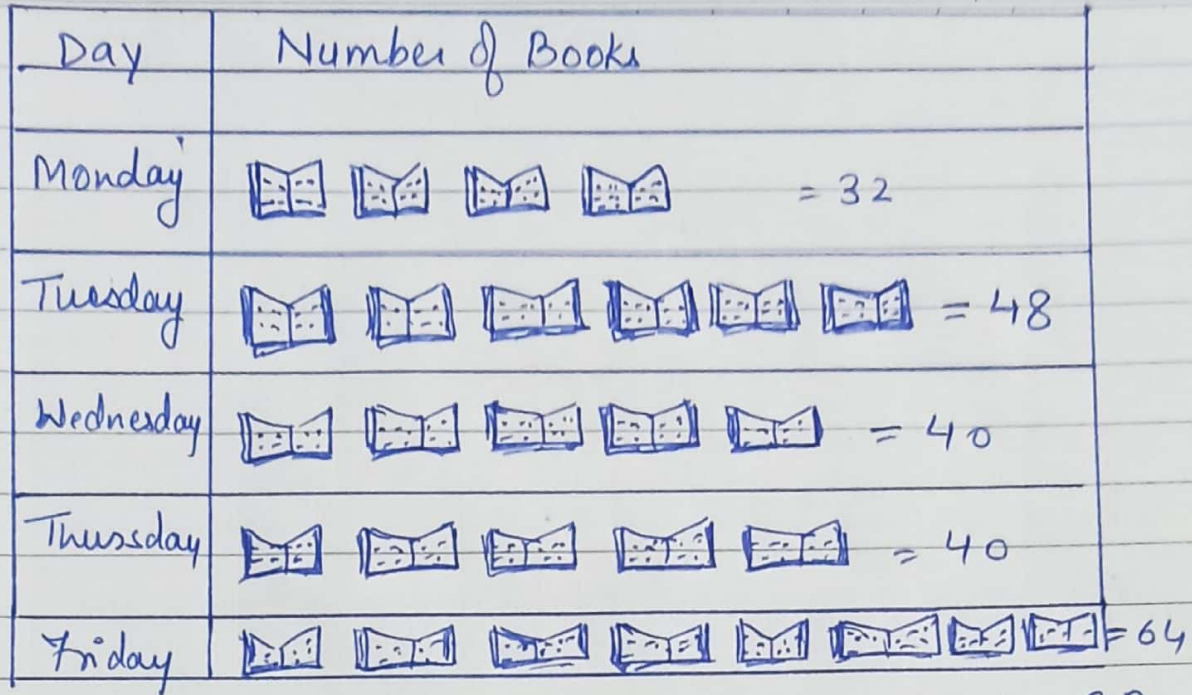 Day Number of Books
Monday = 32
Tuesday = 48
Wednesday = 40
Thursday = 40
Friday = 64